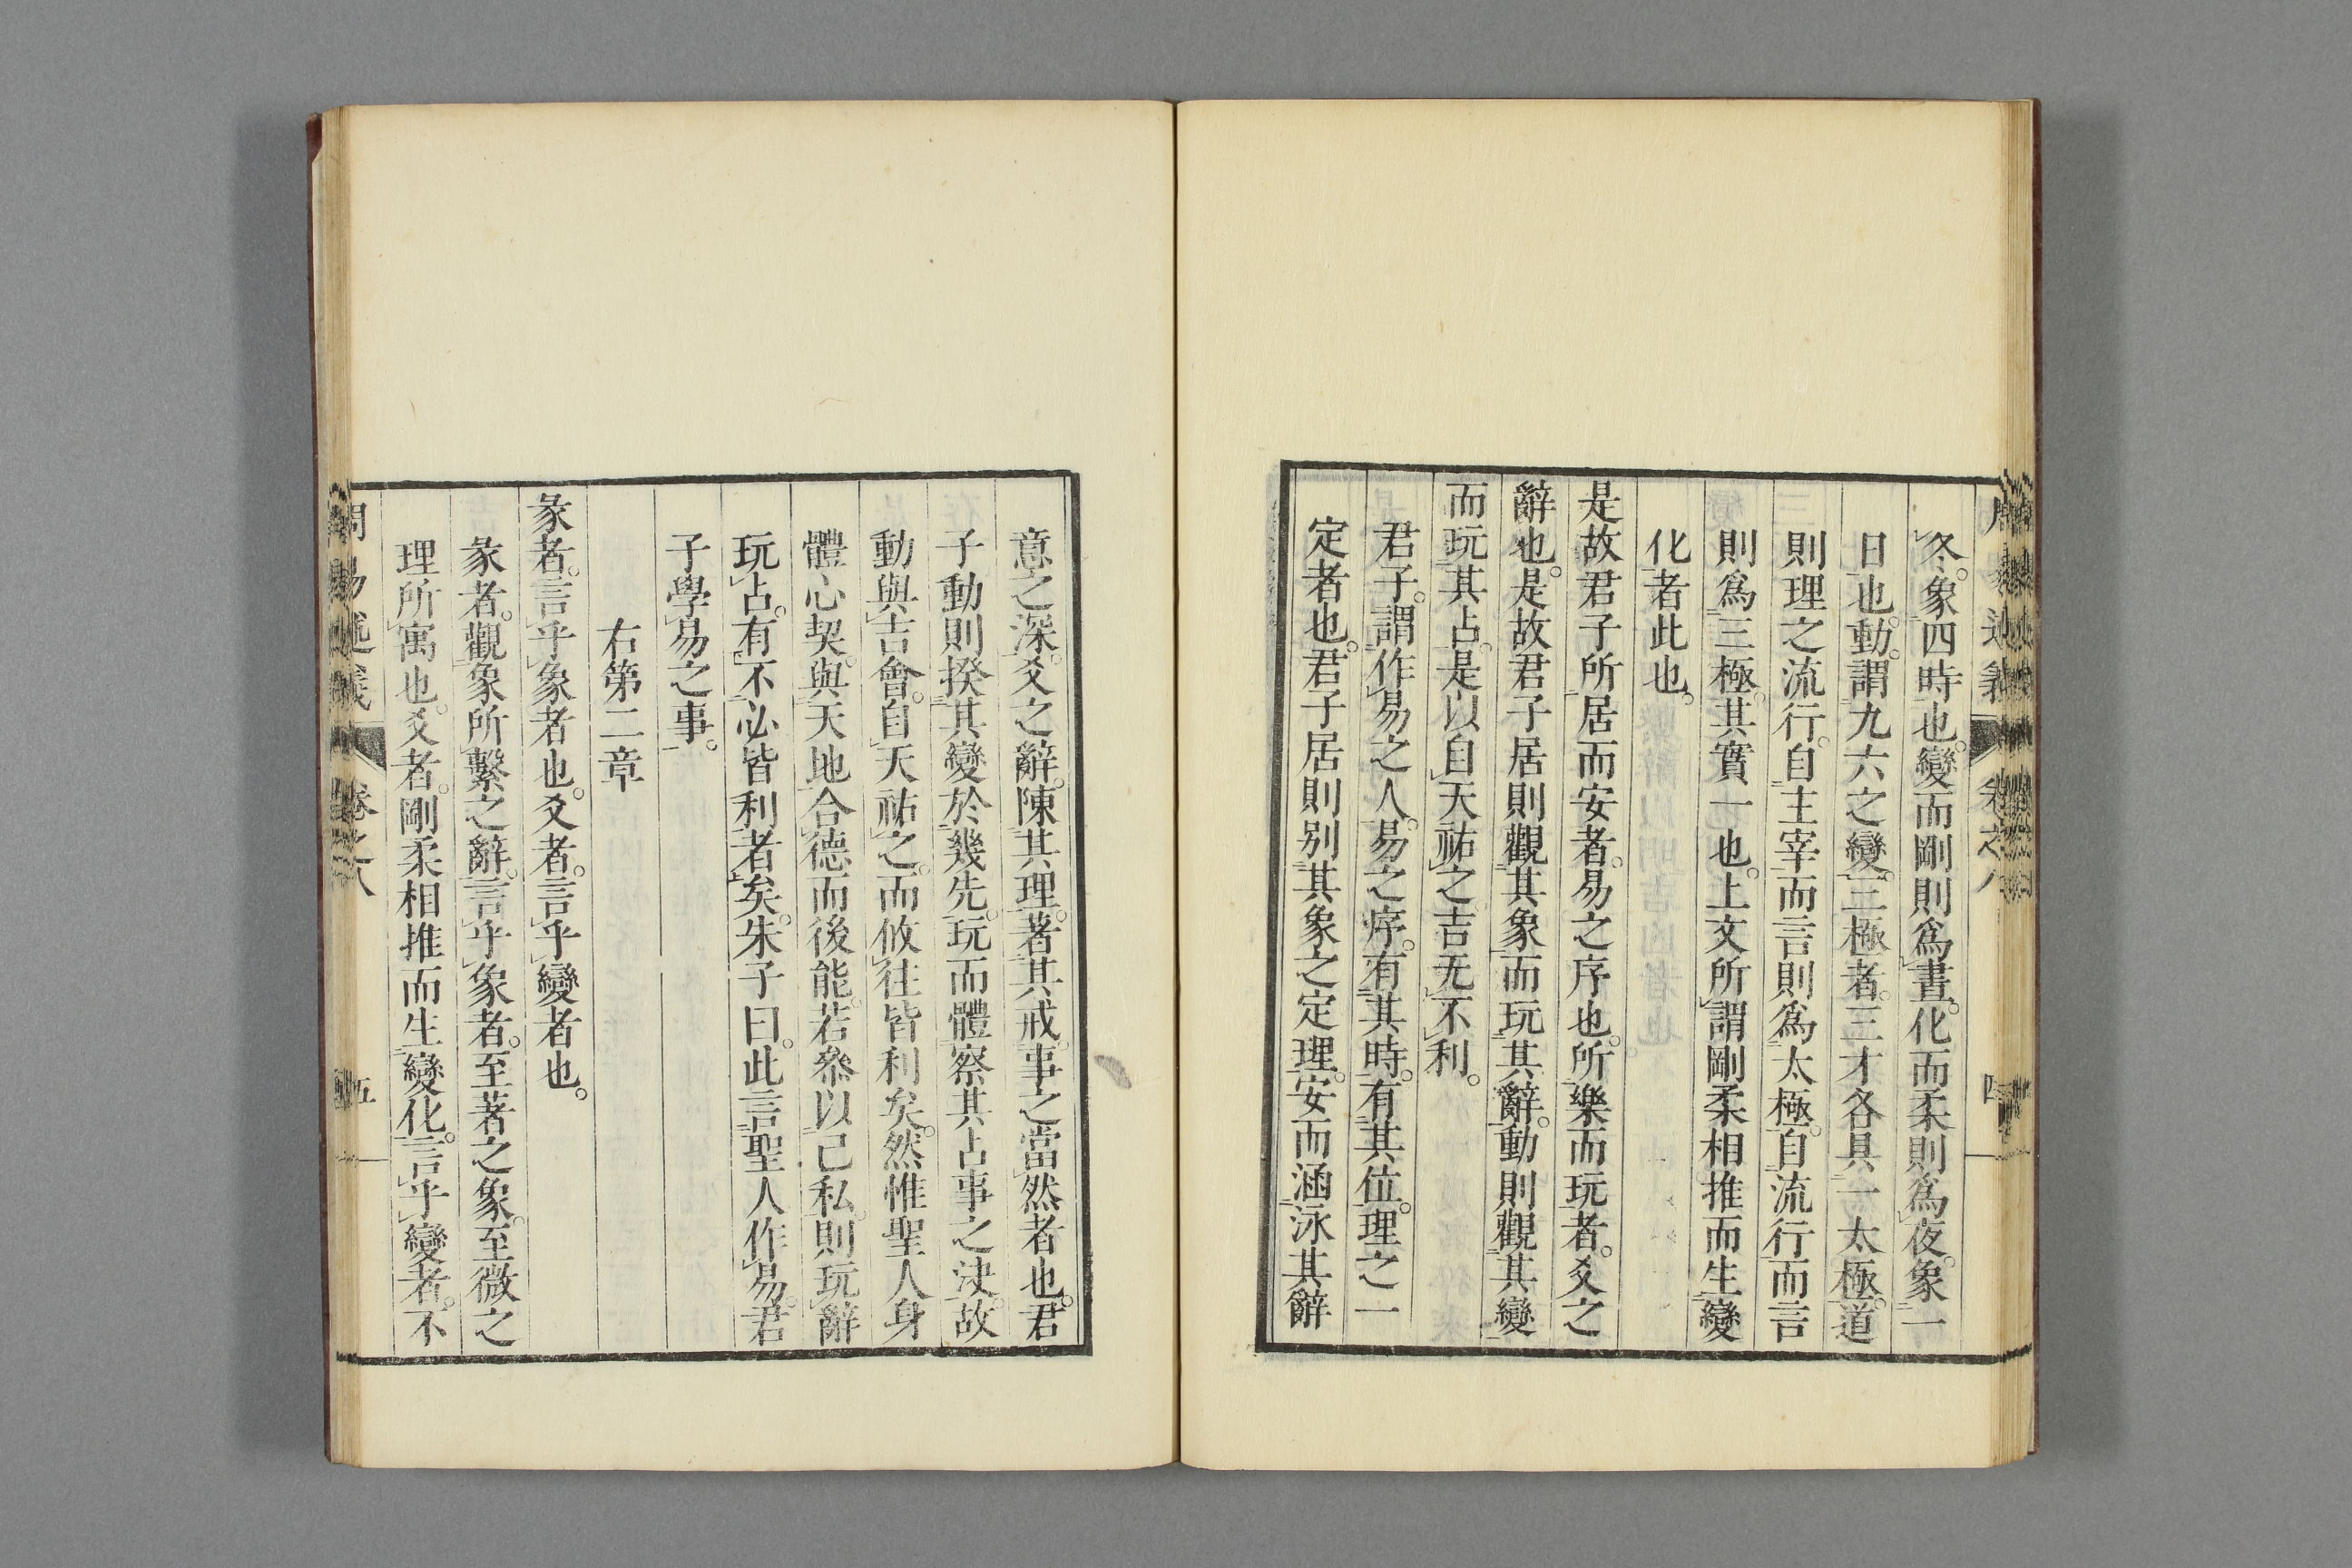 冬。象四時也。變而剛則爲晝。化而柔則爲夜。象一
日也。動。謂九六之變。三極者。三才各具一太極。道
則理之流行。自主宰而言則爲太極。自流行而言
則爲三極。其實一也。上文所謂剛柔相推而生變
化者此也。
是故君子所居而安者。易之序也。所樂而玩者。爻之
辭也。是故君子居則觀其象而玩其辭。動則觀其變
而玩其占。是以自天祐之吉无不利。
君子。謂作易之人。易之序。有其時。有其位。理之一
定者也。君子居則別其象之定理。安而涵泳其辭
意之深。爻之辭。陳其理。著其戒。事之當然者也。君
子動則揆其變於幾先。玩而體察其占事之決。故
動與吉會。自天祐之。而攸往皆利矣。然惟聖人身
體心契。與天地合德而後能。若參以己私。則玩辭
玩占。有不必皆利者矣。朱子曰。此言聖人作易。君
子學易之事。
右第二章
彖者。言乎象者也。爻者。言乎變者也。
彖者。觀象所繫之辭。言乎象者。至著之象。至微之
理所寓也。爻者。剛柔相推而生變化。言乎變者。不
周易述義 卷之八 五